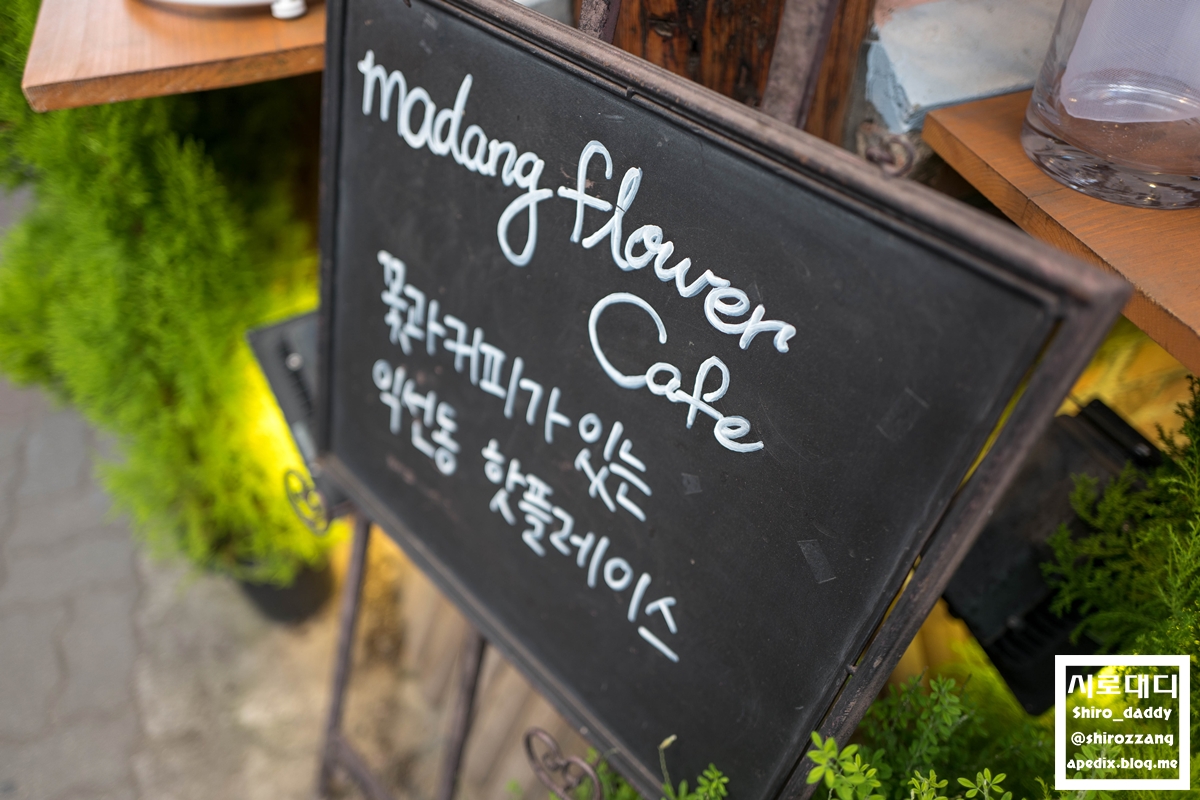 madang flower
Cafe
꽃과 커피가 있는
익선동 핫플레이스
시로대디
Shiro_daddy
@shirozzang
apedix.blog.me